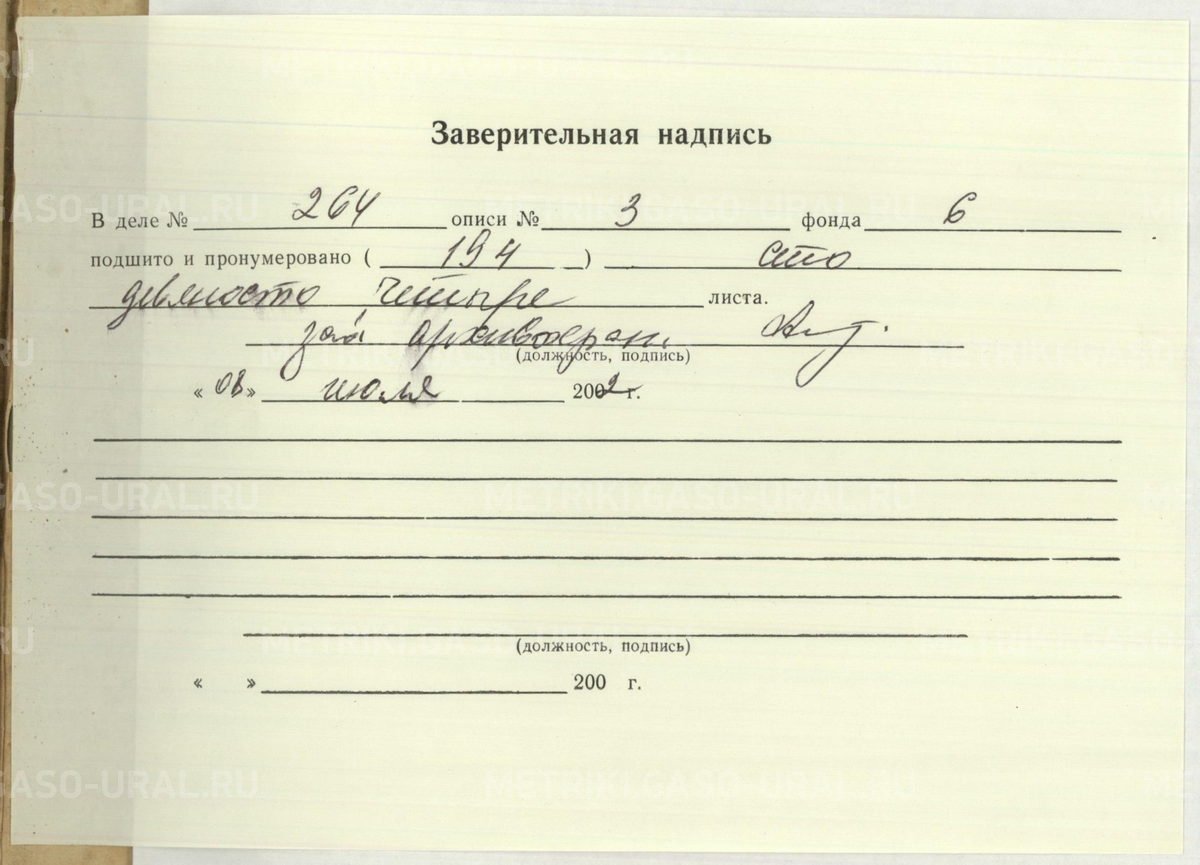 Заверительная надпись
В деле № 264 описи № 3 фонда 6
подшито и пронумеровано ( 194 ) сто
девяносто четыре листа.
зав архивохран.
(должность, подпись)
« » июля 2002 г.
(должность, подпись)
« » 200 г.
METRIKI.GASO-URAL.RU